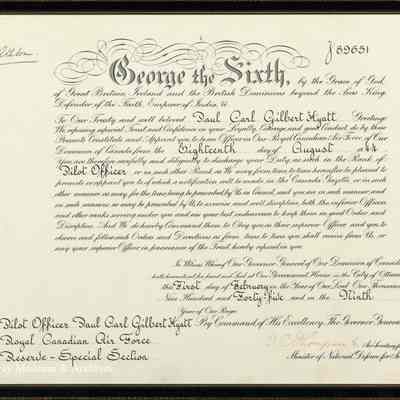 J 59651
George the Sixth, by the Grace of God,
of Great Britain, Ireland and the British Dominions beyond the Seas King,
Defender of the Faith, Emperor of India, &
To Our Trusty and well beloved Paul Carl Gilbert Hyatt Greeting
We reposing especial Trust and Confidence in your Loyalty, Courage, and good Conduct, do by these
Presents Constitute and Appoint you to be an Officer in Our Royal Canadian Air Force of Our
Dominion of Canada from the Eighteenth day of August 1944
You are therefore carefully and diligently to discharge your Duty as such in the Rank of
Pilot Officer or in such other Rank as We may from time to time hereafter be pleased to
promote or appoint you to of which a notification will be made in the Canada Gazette, or in such
other manner as may for the time being be prescribed by Us in Council, and you are in such manner and
on such occasions as may be prescribed by Us to exercise and well discipline both the inferior Officers
and other ranks serving under you and use your best endeavours to keep them in good Order and
Discipline. And We do hereby Command them to Obey you as their superior Officer and you to
observe and follow such Orders and Directions as from time to time you shall receive from Us, or
any your superior Officer in pursuance of the Trust hereby reposed in you
In Witness Whereof Our Governor General of Our Dominion of Canada
hath hereunto set his hand and Seal at Our Government House in the City of Ottawa
this First day of February in the Year of Our Lord One Thousand
Nine Hundred and Forty-Five and in the Ninth
Year of Our Reign
Pilot Officer Paul Carl Gilbert Hyatt By Command of His Excellency The Governor General
Royal Canadian Air Force
Reserve - Special Section
Minister of National Defence for
Museum & Archives